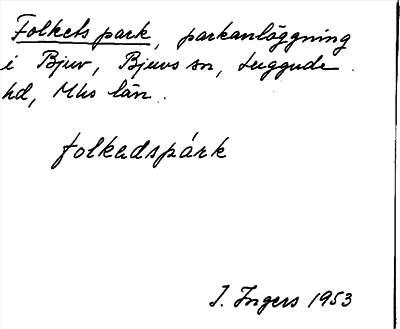 Folkets park, parkanläggning
i Bjuv, Bjuvs sn, Luggude
hd, Mhs län.
folkadspárk
I. Ingers 1953